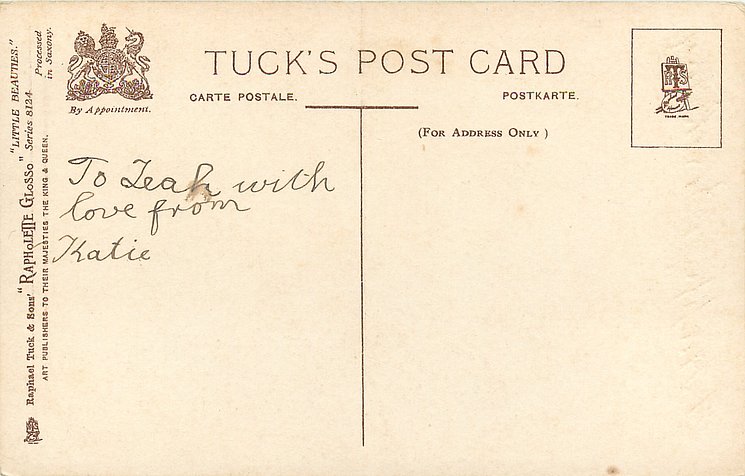 "LITTLE BEAUTIES."
Processed
in Saxony.
Raphael Tuck & Sons' "RAPHOLETTE GLOSSO" Series 8124
ART PUBLISHERS TO THEIR MAJESTIES THE KING & QUEEN.
By Appointment.
TUCK'S POST CARD
CARTE POSTALE.
POSTKARTE.
(FOR ADDRESS ONLY)
TRADE MARK
To Leah with
love from
Katie